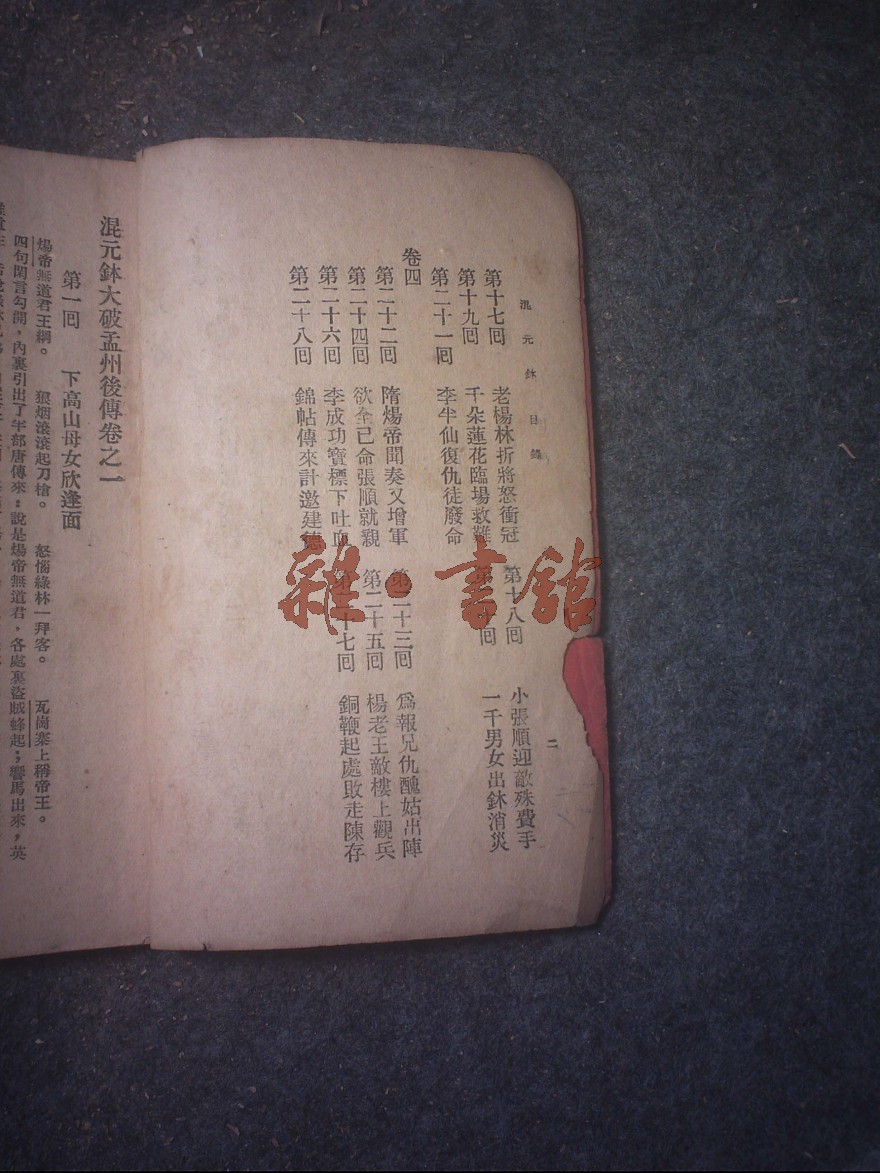 混元鉢目錄
二
第十七回 老楊林折將怒衝冠 第十八回 小張順迎敵殊費手
第十九回 千朵蓮花臨場救難 第 十回 一千男女出鉢消災
第二十一回 李半仙復仇徒廢命
卷四
第二十二回 隋煬帝聞奏又增軍 第二十三回 爲報兄仇醜姑出陣
第二十四回 欲全已命張順就親 第二十五回 楊老王敵樓上觀兵
第二十六回 李成功寶標下吐血 第二十七回 銅鞭起處敗走陳存
第二十八回 錦帖傳來計邀建德
混元鉢大破孟州後傳卷之一
第一回 下高山母女欣逢面
煬帝無道君王綱。 狼烟滾滾起刀槍。 怒惱綠林一拜客。 瓦崗寨上稱帝王。
四句閑言勾開，內裏引出了半部唐傳來：說是煬帝無道君，各處裏盜賊蜂起；響馬出來，英
雜·書館